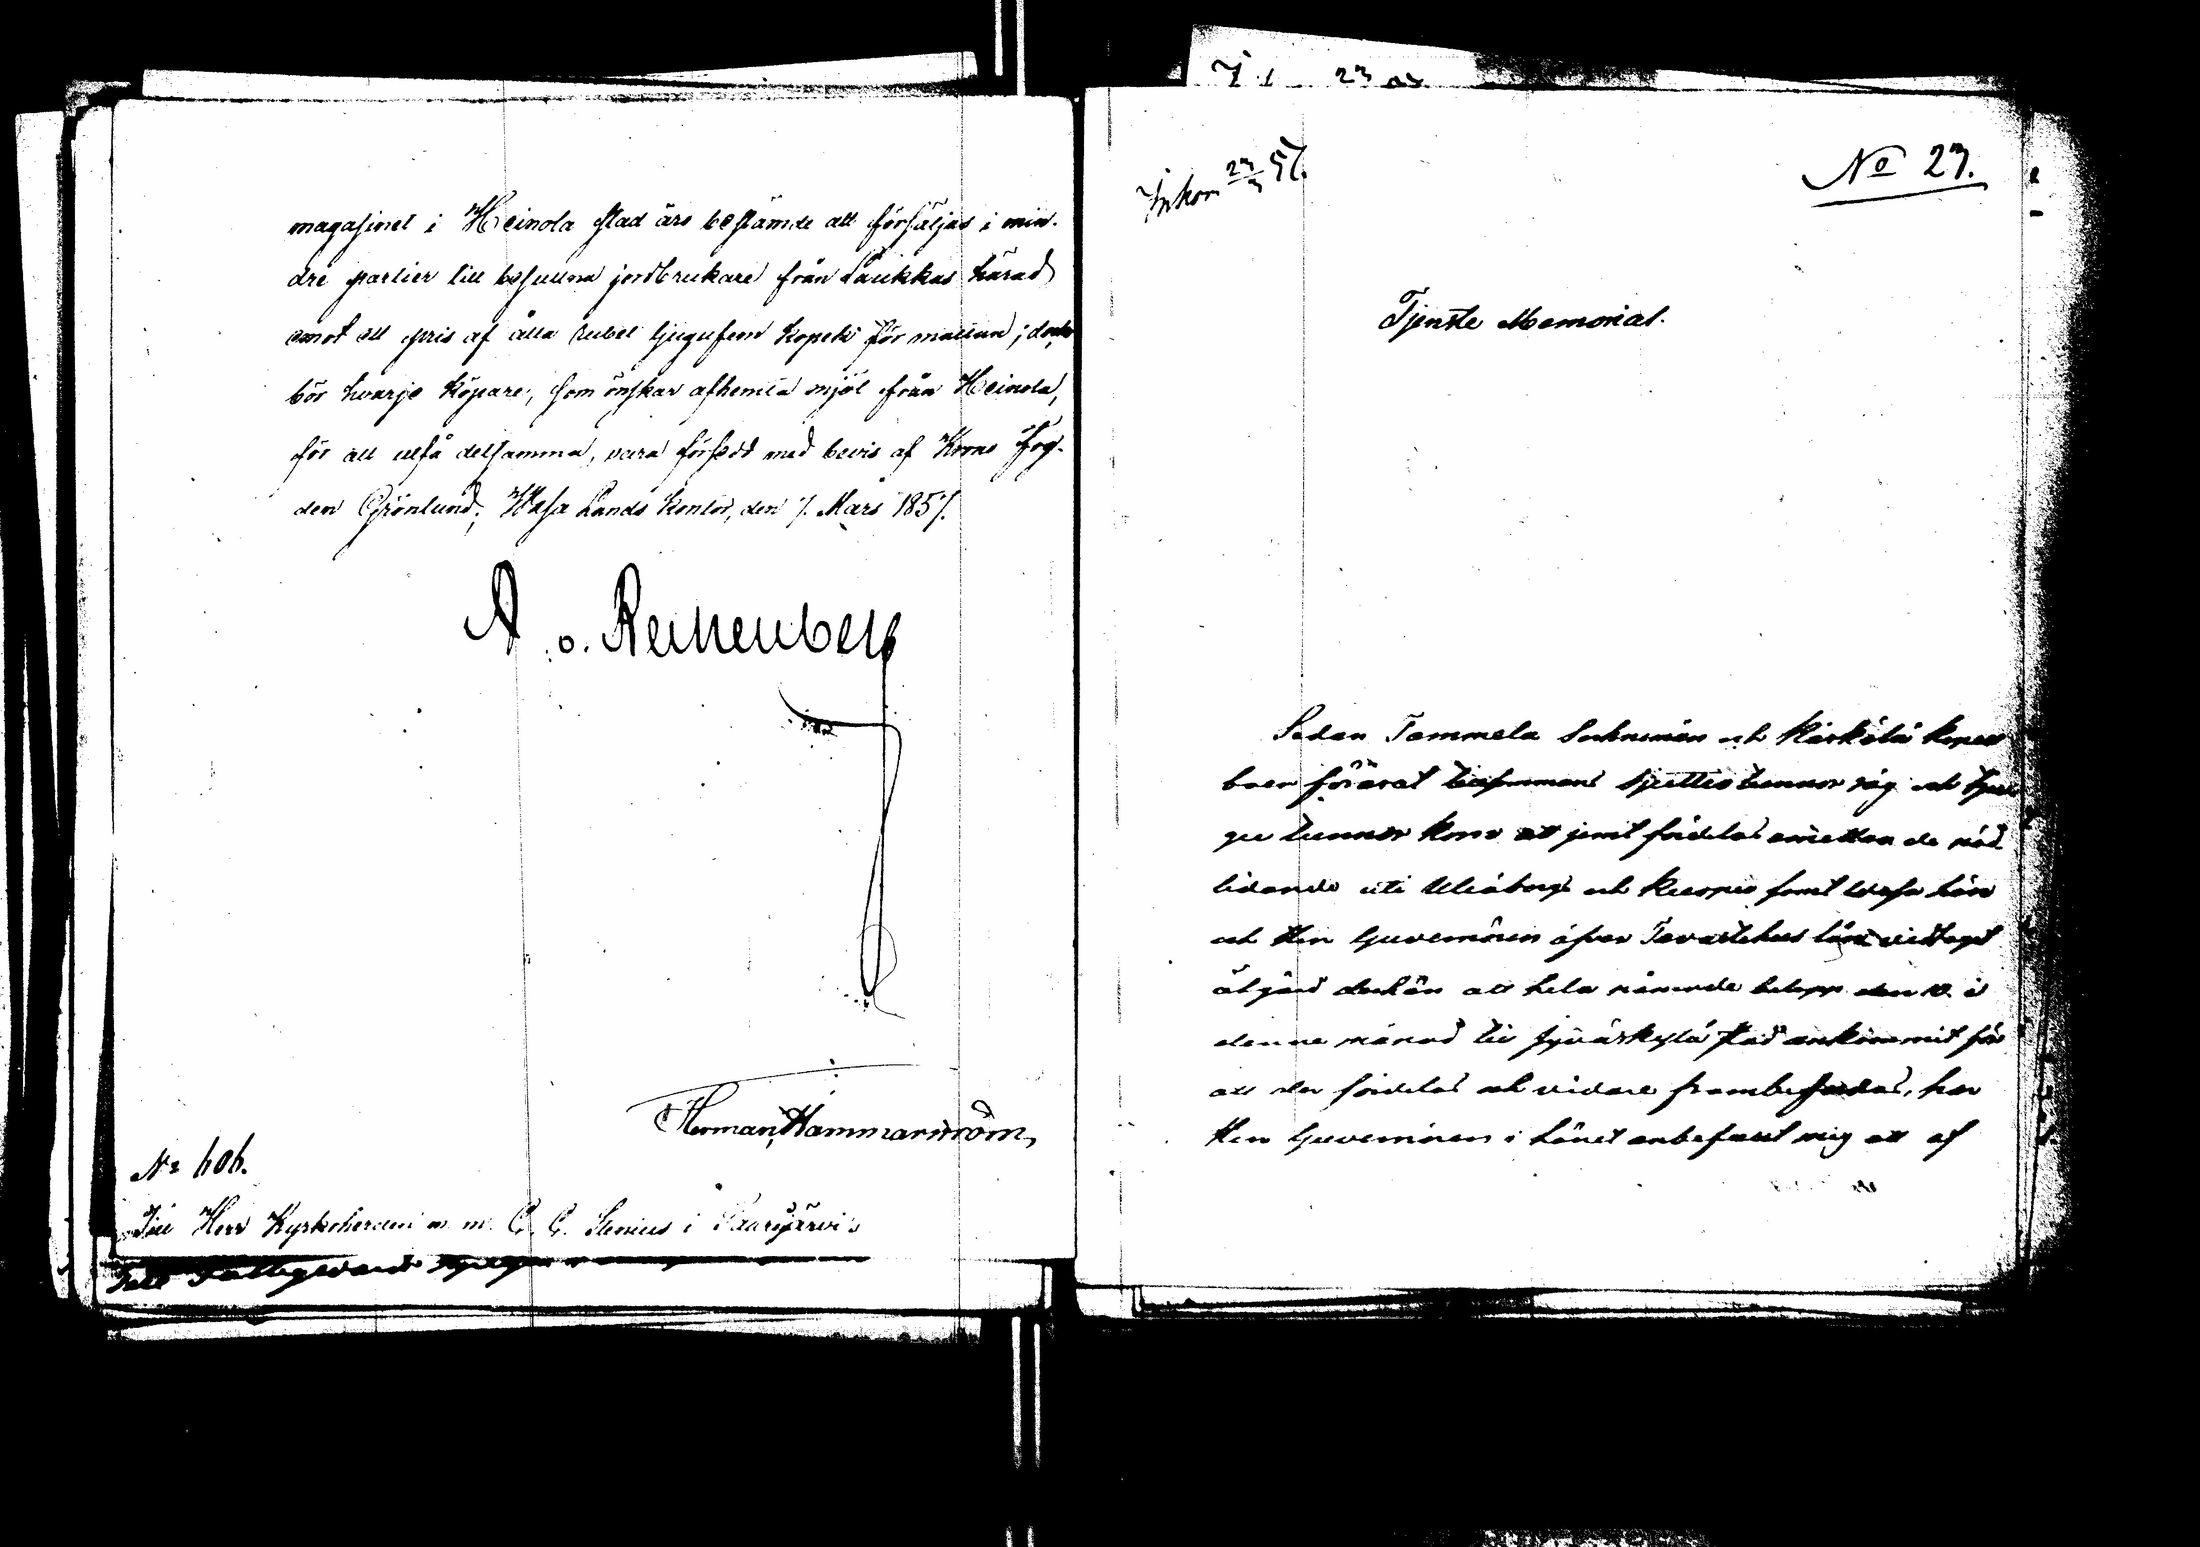 magasinet i Heinola stad äro bestämde att försäljas i min-
dre partier till besuttna jordbrukare från Laukkas härad
emot ett pris af åtta rubel tjugufem kopek för mattan; dock
bör hvarje köpare, som önskar afhemta mjöl från Heinola,
för att utfå detsamma, vara försedd med bevis af Krono Fog-
den Grönlund; Wasa Lands Kontor, den 7. Mars 1857.
Herman Hammarström
No 606.
Till Herr Kyrkoherden m. m. C. C. Stenius i Saarijärvi
Inkom 27/3 57.
No 27.
Tjenste Memorial.
Sedan Tammela Socknemän och Kärkölä
boer förärat tillsammans sjuttio tunnor råg och tju-
gu tunnor korn att jemt fördelas emellan de nöd-
lidande uti Uleåborgs och Kuopio samt Wasa Län
och Herr Guvernören öfver Tavastehus län vidtagit
åtgärd derhän att hela nämnde belopp den 10 i
denne månad till Jyväskylä stad ankommit för
att der fördelas och vidare frambefordras, har
Herr Guvernören i Länet anbefallt mig att af